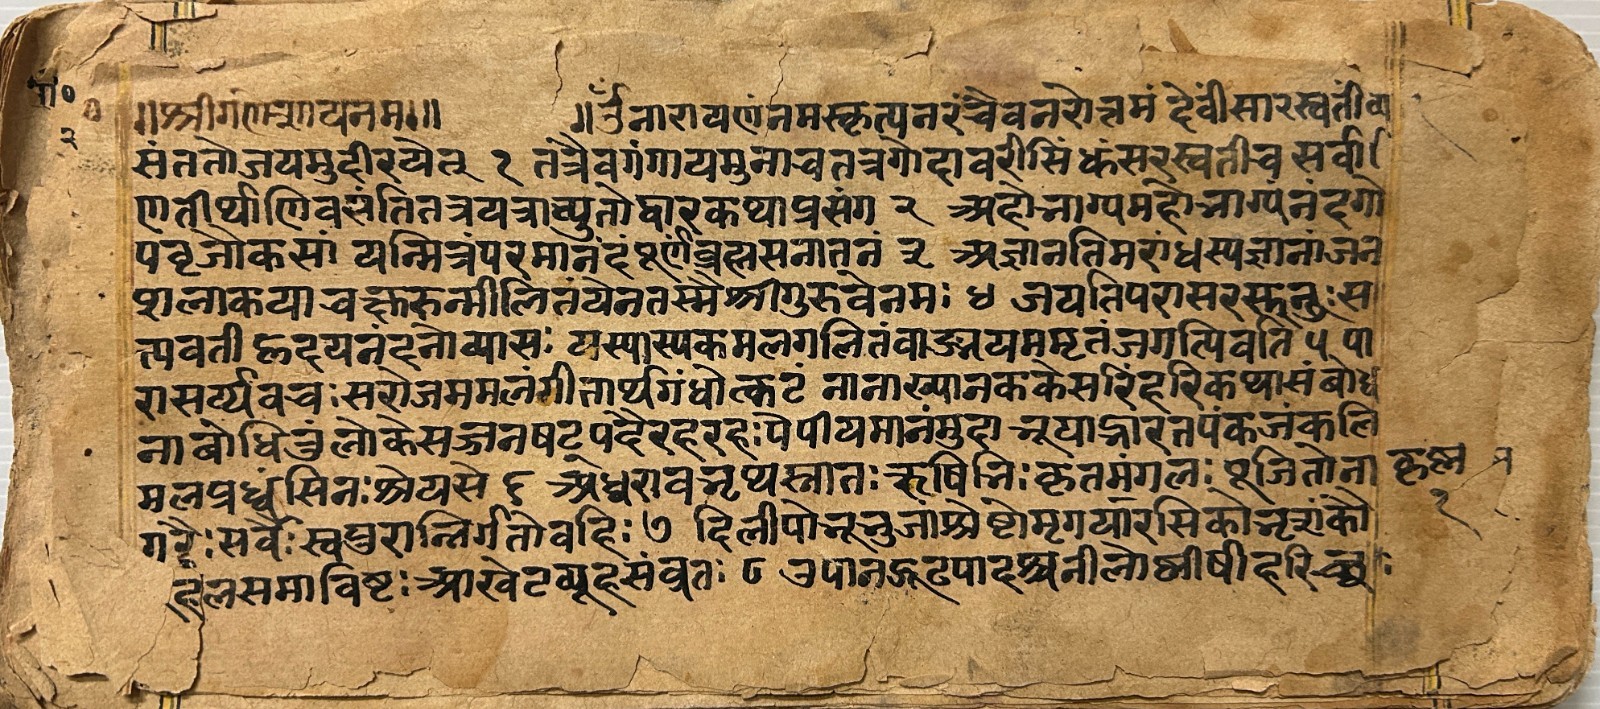 ॥श्रीगणेशायनमः॥ ॥ॐनारायणंनमस्कृत्यनरंचैवनरोत्तमं देवींसारस्वतींव्या
संततोजयमुदीरयेत् १ तत्रैवगंगायमुनाचतत्रगोदावरीसिंधंसरस्वतीच सर्वा
णतीर्थाणिवसंतितत्रयत्राच्युतोद्यारकथाप्रसंग २ अहोभाग्यमहोभाग्यंनंदगो
पवृजौकसां यन्मित्रंपरमानंदंपूर्णंब्रह्मसनातनं ३ अज्ञानतिमरांधस्यज्ञानांजन
शलाकयाचक्षुरुन्मीलितंयेनतस्मैश्रीगुरुवेनमः ४ जयतिपरासरसूनुःस
त्यवतीहृदयनंदनोव्यासः यस्यास्यकमलगलितंवाङ्मयममृतंजगत्पिवति ५ पा
रासर्य्यवचःसरोजममलंगीतार्थगंधोत्कटं नानाख्यानककेसरिंहरिकथासंबोध
नाबोधितुंलोकेसज्जनषट्पदैरहरहःपेपीयमानंमुदा भूयाद्भारतपंकजंकलि
मलप्रध्वंसिनःश्रेयसे ६ अध्वरावभृथस्नातःऋषिभिःकृतमंगलःपूजितोना
गरैःसर्वैःस्वपुरान्निर्गतोवहिः ७ दिलीपोभूभुजांश्रेष्टोमृगयारसिकोभृशंकौ
हलसमाविष्टःआखेटव्यूहसंव्रतः ८ उपानङ्गूटपादश्चनीलोष्णीषीहरिच्छ